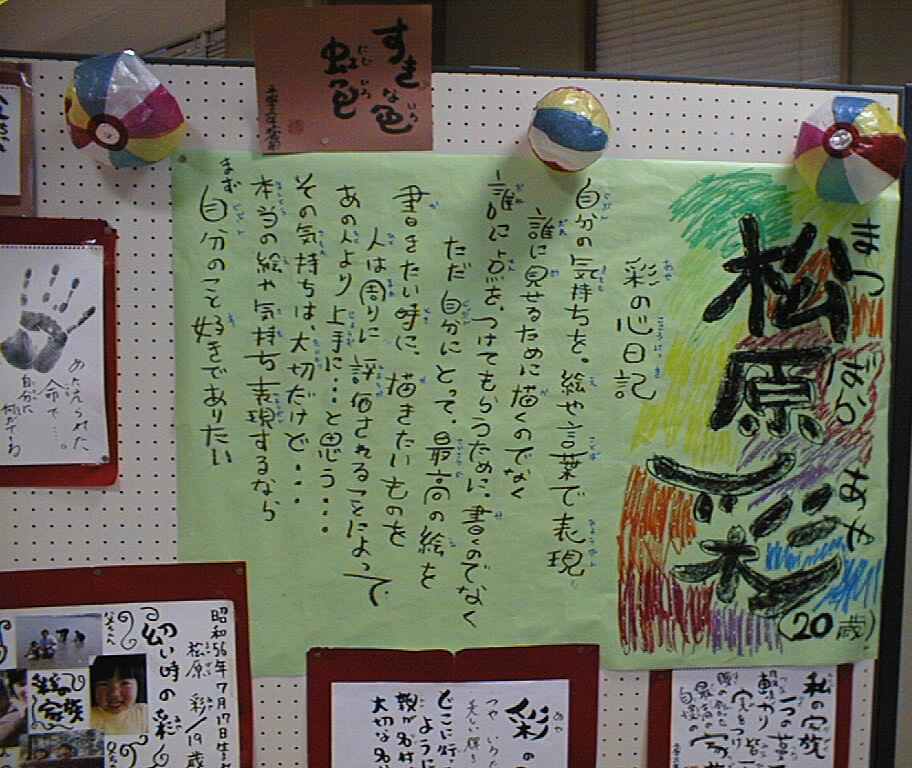 すきな色
虹色
まつばら あや
松原 彩
(20歳)
彩の心日記
自分の気持ちを。絵や言葉で表現
誰に見せるために描くのでなく
誰に点を、つけてもらうために。書くのでなく
ただ自分にとって、最高の絵を
書きたい時に、描きたいものを
人は周りに評価されることによって、
あの人より上手に・・・と思う・・・
その気持ちは、大切だけど・・・
本当の絵や気持ち表現するなら
まず自分のこと好きでありたい
あたえられた
命で……。
自分に
何ができるか
昭和56年7月17日生
松原 彩/19歳
幼い時の彩
父さん
彩の家族
彩の
どこに行っ
ように
親が名付
大切な名前
私の家族
一つの草